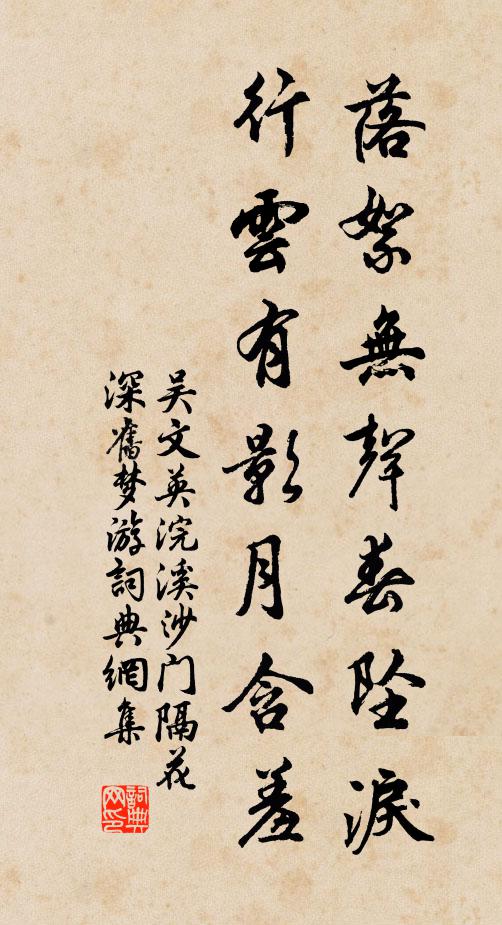 落絮無聲春墜淚
行雲有影月含羞
吴文英浣溪沙门隔花
深舊梦游詞典網集
詞典网印